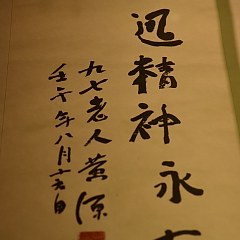 迅精神永
九七老人黄源
壬午年八月十五日